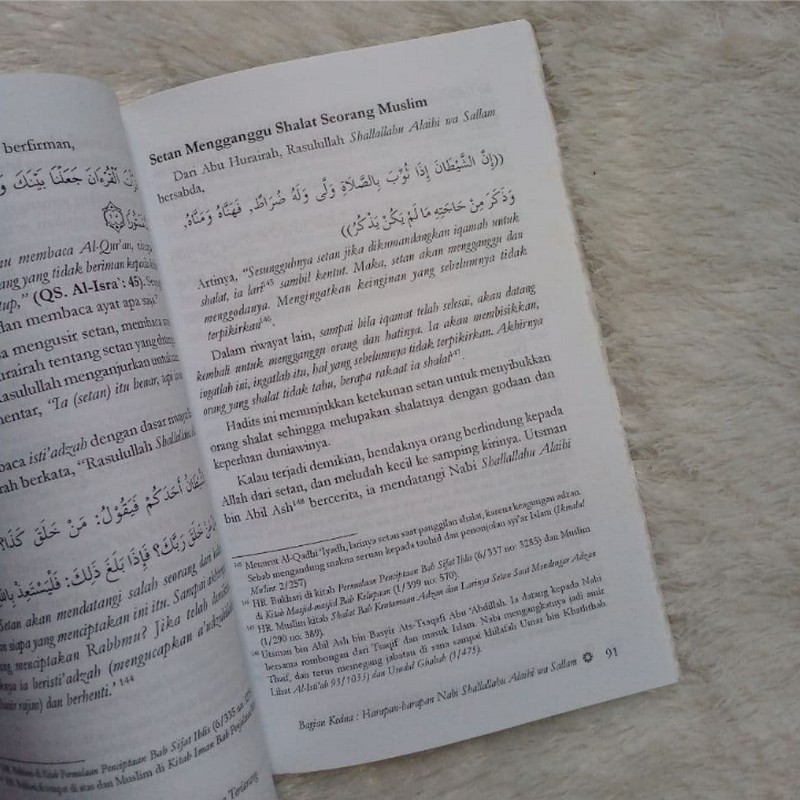 berfirman,
membaca Al-Qur'an,
yang tidak beriman kepada
(QS. Al-Isra': 45).
dan membaca ayat apa saja.
mengusir setan, membaca
tentang setan yang
Rasulullah menganjurkan untuk
"Ia (setan) itu benar,
isti'adzah dengan dasar
berkata, "Rasulullah
أَحَدَكُمْ فَيَقُولُ: مَنْ خَلَقَ كَذَا؟
خَلَقَ رَبَّكَ؟ فَإِذَا بَلَغَ ذَلِكَ: فَلْيَسْتَعِذْ
Setan akan mendatangi salah seorang dari
siapa yang menciptakan ini itu. Sampai
menciptakan Rabbmu? Jika telah
ia beristi'adzah (mengucapkan
rajim) dan berhenti.' 144
Setan Mengganggu Shalat Seorang Muslim
Dari Abu Hurairah, Rasulullah Shallallahu Alaihi wa Sallam
bersabda,
((إِنَّ الشَّيْطَانَ إِذَا ثُوِّبَ بِالصَّلَاةِ وَلَّى وَلَهُ ضُرَاطٌ, فَهَنَّاهُ وَمَنَّاهُ,
وَذَكَرَ مِنْ حَاجَتِهِ مَا لَمْ يَكُنْ يَذْكُرُ))
Artinya, "Sesungguhnya setan jika dikumandangkan iqamah untuk
shalat, ia lari145 sambil kentut. Maka, setan akan mengganggu dan
menggodanya. Mengingatkan keinginan yang sebelumnya tidak
terpikirkan146.
Dalam riwayat lain, sampai bila iqamat telah selesai, akan datang
kembali untuk mengganggu orang dan hatinya. Ia akan membisikkan,
ingatlah ini, ingatlah itu, hal yang sebelumnya tidak terpikirkan. Akhirnya
orang yang shalat tidak tahu, berapa rakaat ia shalat147.
Hadits ini menunjukkan ketekunan setan untuk menyibukkan
orang shalat sehingga melupakan shalatnya dengan godaan dan
keperluan duniawinya.
Kalau terjadi demikian, hendaknya orang berlindung kepada
Allah dari setan, dan meludah kecil ke samping kirinya. Utsman
bin Abil Ash148 bercerita, ia mendatangi Nabi Shallallahu Alaihi
145 Menurut Al-Qadhi 'Iyadh, larinya setan saat panggilan shalat, karena keagungan adzan.
Sebab mengandung makna seruan kepada tauhid dan penonjolan syi'ar Islam (Ikmalul
Mulim 2/257)
146 HR. Bukhari di kitab Permulaan Penciptaan Bab Sifat Iblis (6/337 no: 3285) dan Muslim
di Kitab Masjid-masjid Bab Kelupaan (1/399 no: 570).
147 HR. Muslim kitab Shalat Bab Keutamaan Adzan dan Larinya Setan Saat Mendengar Adzan
(1/290 no: 389).
148 Utsman bin Abil Ash bin Basyir Ats-Tsaqafi Abu 'Abdillah. Ia datang kepada Nabi
bersama rombongan dari Tsaqif dan masuk Islam. Nabi mengangkatnya jadi amir
Thaif, dan terus memegang jabatan di sana sampai khilafah Umar bin Khaththab.
Lihat Al-Isti'ab 93/1035) dan Usudul Ghabah (3/475).
Bagian Kedua : Harapan-harapan Nabi Shallallahu Alaihi wa Sallam 91